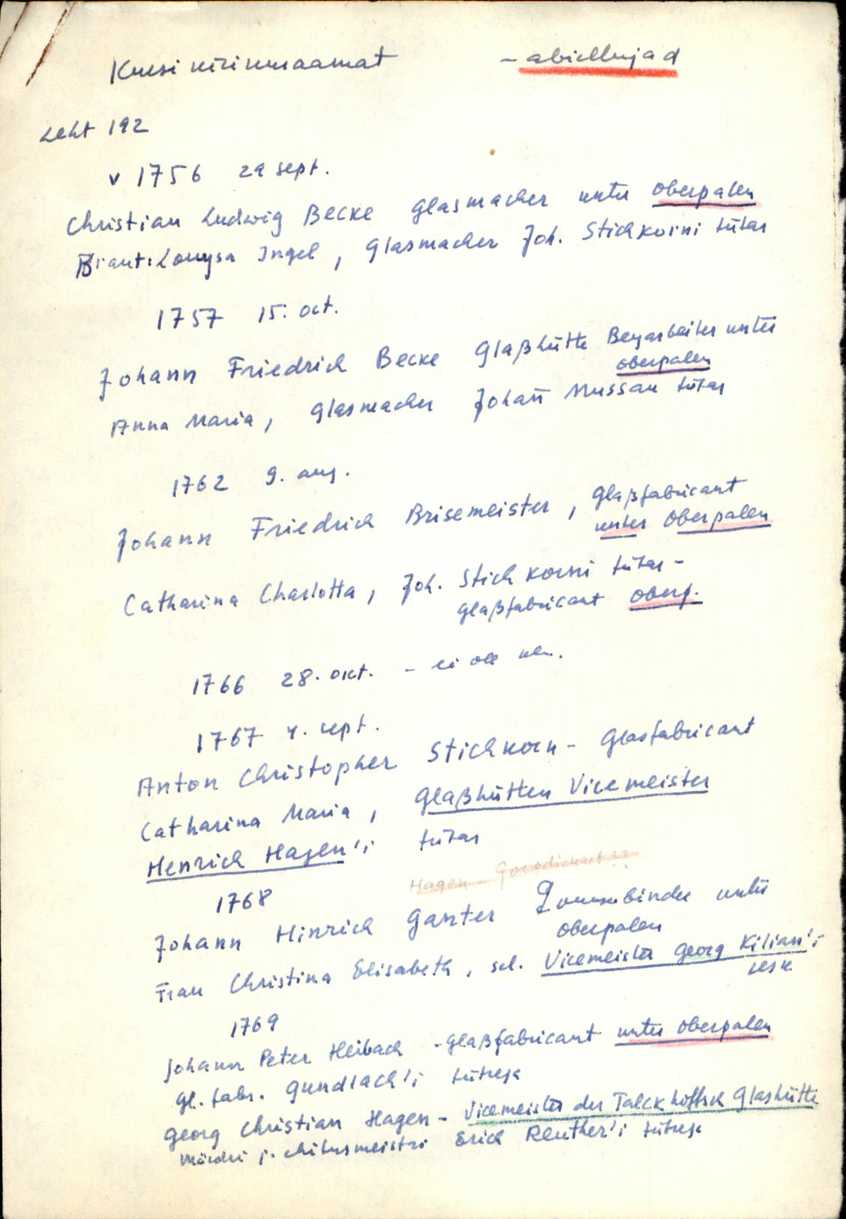 Kursi kirikuraamat - abiellujad
Leht 192
v 1756 29 sept.
Christian Ludwig Becke Glasmacher unter Oberpalen
Braut: Lowysa Ingel, Glasmacher Joh. Stichkorni tütar
1757 15. oct.
Johann Friedrich Becke Glaßhütte Beyarbeiter unter
Oberpalen
Anna Maria, Glasmacher Johañ Mussau tütar
1762 9. aug.
Johann Friedrich Brisemeister, Glaßfabricant
unter Oberpalen
Catharina Charlotta, Joh. Stichkorni tütar -
Glaßfabricant Oberp.
1766 28. okt. - ei ole
1767 4. sept.
Anton Christopher Stichkorn - Glasfabricant
Catharina Maria, Glaßhütten Vicemeister
Henrich Hagen'i tütar
Hagen
1768
Johann Hinrich Ganter unter
Oberpalen
Frau Christina Elisabeth, sel. Vicemeister Georg Kilian'i
lesk
1769
Johann Peter Heibach - Glaßfabricant unter Oberpalen
Gl. fabr. Gundlach'i tütrega
Georg Christian Hagen - Vicemeister der Talckhoffsch Glashütte
mõldri j. ehitusmeistri Erich Reuther'i tütrega